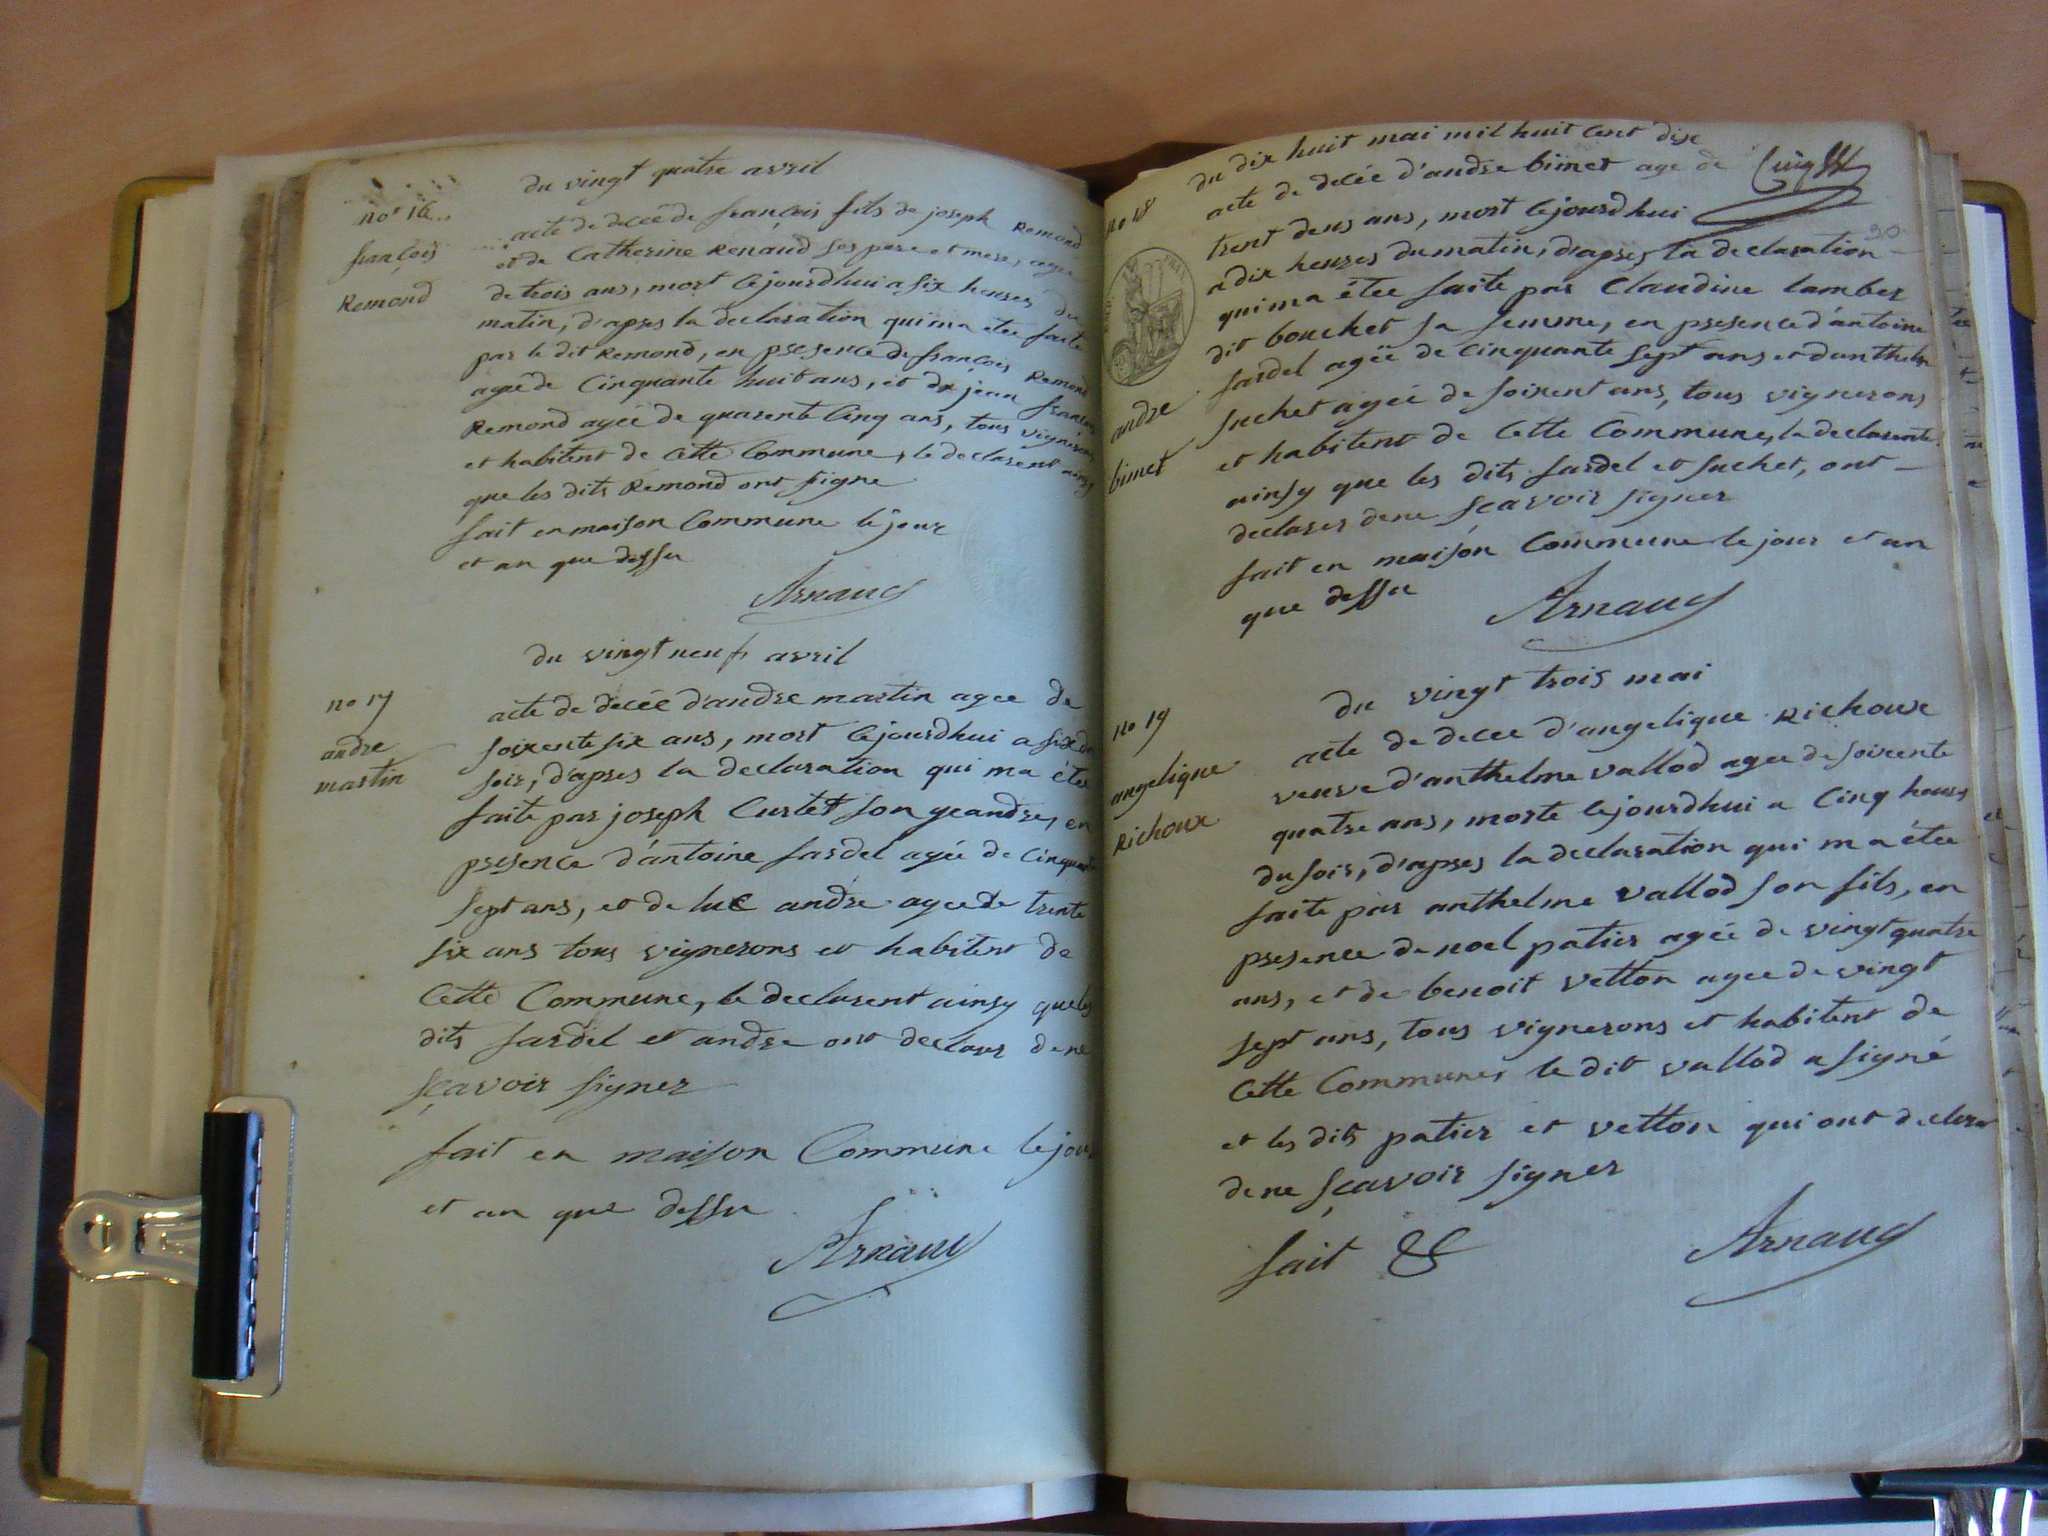 du vingt quatre avril
no 16
françois
Remond
acte de decé de françois fils de joseph Remond
et de Catherine Renaud ses pere et mere, agée
de trois ans, mort cejourdhui a six heures du
matin, d'apres la declaration qui ma etee faite
par le dit Remond, en presence de françois Remond
ageé de Cinquante huit ans, et de jean françois
Remond ageé de quarente Cinq ans, tous vignerons
et habitent de Cette Commune, le declarent ainsy
que les dits Remond ont signe
fait en maison Commune le jour
et an que dessu
Arnaud
du vingt neuf avril
no 17
andre
martin
acte de decée d'andre martin agee de
soixente six ans, mort cejourdhui a six du
soir, d'apres la declaration qui ma étee
faite par joseph Curtet son geandre, en
presence d'antoine sardel ageé de Cinquante
sept ans, et de luc andre agee de trente
six ans tous vignerons et habitent de
Cette Commune, le declarent ainsy que les
dits sardel et andre ont declarer de ne
sçavoir signer
fait en maison Commune le jour
et an que dessu
Arnaud
du dix huit mai mil huit cent dix
no 18
andre
bimet
acte de decée d'andre bimet age de
trent deus ans, mort cejourdhui
30
a dix heures du matin, d'apres la declaration
qui ma étee faite par Claudine lamber
dit bouchet sa femme, en presence d'antoine
sardel ageé de Cinquante sept ans et d'anthelme
suchet ageé de soixent ans, tous vignerons
et habitent de Cette Commune, la declarente
ainsy que les dits sardel et suchet, ont
declarer dene sçavoir signer
fait en maison Commune le jour et an
que dessu
Arnaud
du vingt trois mai
no 19
angelique
Richoux
acte de decee d'angelique Richoux
veuve d'anthelme vallod agee de soixente
quatre ans, morte cejourdhui a Cinq heures
du soir, d'apres la declaration qui ma étee
faite par anthelme vallod son fils, en
presence de noel patier ageé de vingt quatre
ans, et de benoit vetton agee de vingt
sept ans, tous vignerons et habitent de
Cette Commune, le dit vallod a signé
et les dits patier et vetton qui ont declarer
de ne sçavoir signer
fait &
Arnaud